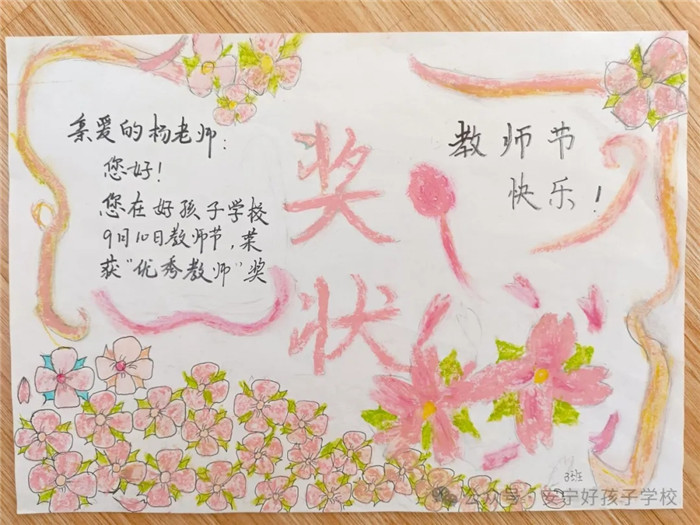 亲爱的杨老师：
您好！
您在好孩子学校
9月10日教师节，荣
获“优秀教师”奖
奖
状
教师节
快乐！
3班
公众号·安宁好孩子学校